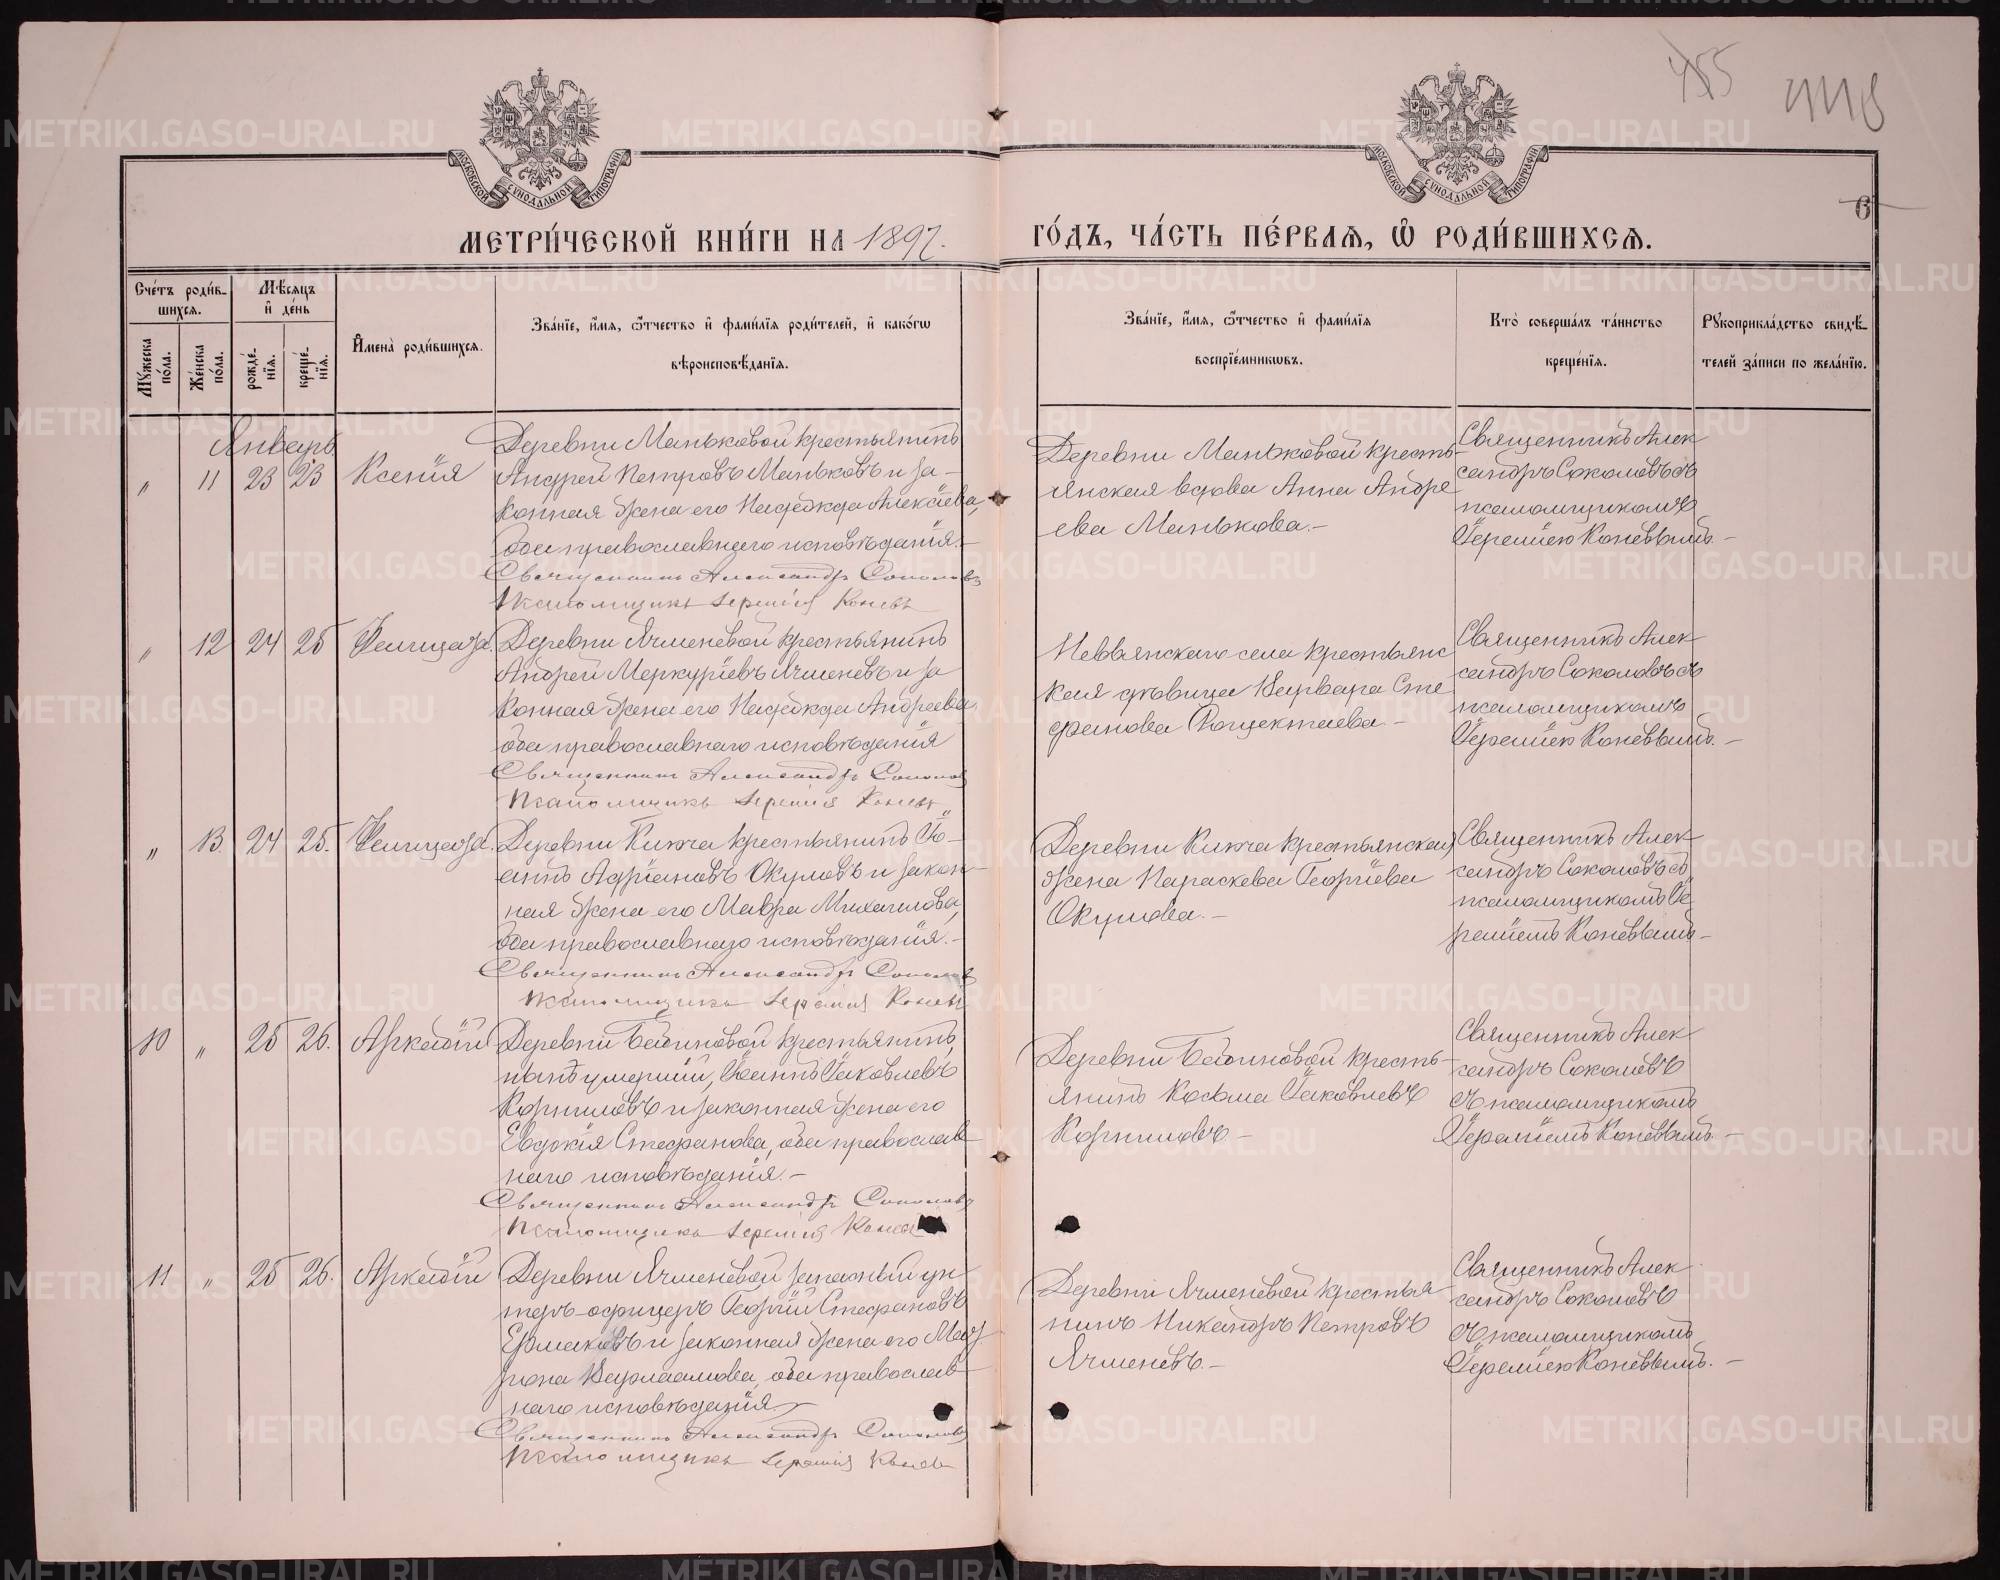 455
448
6
МОСКОВСКОЙ СѴНОДАЛЬНОЙ ТИПОГРАФІИ
МОСКОВСКОЙ СѴНОДАЛЬНОЙ ТИПОГРАФІИ
МЕТРИ́ЧЕСКОЙ КНИ́ГИ НА 1897.
ГО́ДЪ, ЧА́СТЬ ПЕ́РВАЯ, Ѽ РОДИ́ВШИХСЯ.
Сче́тъ роди́в-
шихся.
Мѣ́сяцъ
и̂ де́нь
Мꙋ́жеска по́ла.
Же́нска по́ла.
рожде́нїя.
креще́нїя.
И̂мена̀ роди́вшихся.
Зва́нїе, и̂́мя, ѻ҆́тчество и̂ фами́лїя роди́телей, и̂ како́гѡ
вѣроисповѣ́данїя.
Зва́нїе, и̂́мя, ѻ҆́тчество и̂ фами́лїя
воспрїе́мникѡвъ.
Кто̀ соверша́лъ та́инство
креще́нїя.
Рꙋкоприкла́дство свидѣ́-
телей за́писи по жела́нїю.
Январь
" 11 23 23 Ксенія
Деревни Маньковой крестьянинъ
Андрей Петровъ Маньковъ и за-
конная жена его Надежда Алексѣева,
оба православнаго исповѣданія.-
Священникъ Александръ Соколовъ
Псаломщикъ Іеремія Коневъ
Деревни Маньковой кресть-
янская вдова Анна Андре
ева Манькова.-
Священникъ Алек
сандръ Соколовъ съ
псаломщикомъ
Іереміею Коневымъ.-
" 12 24 25 Фелицата.
Деревни Ячменевой крестьянинъ
Андрей Меркуріевъ Ячменевъ и за
конная жена его Надежда Андреева,
оба православнаго исповѣданія
Священникъ Александръ Соколов
Псаломщикъ Іеремія Коневъ
Невьянскаго села крестьянс
кая дѣвица Варвара Сте
фанова Рощектаева.-
Священникъ Алек
сандръ Соколовъ съ
псаломщикомъ
Іереміею Коневымъ.-
" 13. 24 25. Фелицата.
Деревни Ключа крестьянинъ Іо-
аннъ Адріановъ Окуловъ и закон-
ная жена его Мавра Михаилова,
оба православнаго исповѣданія.-
Священникъ Александръ Соколовъ
Псаломщикъ Іеремія Коневъ
Деревни Ключа крестьянская
жена Параскева Георгіева
Окулова.-
Священникъ Алек
сандръ Соколовъ съ
псаломщикомъ Іе
реміемъ Коневымъ-
10 " 25 26. Аркадій
Деревни Бабиновой крестьянинъ,
нынѣ умершій, Іоаннъ Іаковлевъ
Корниловъ и законная жена его
Евдокія Стефанова, оба православ-
наго исповѣданія.-
Священникъ Александръ Соколовъ
Псаломщикъ Іеремія Конев
Деревни Бабиновой кресть-
янинъ Косьма Іаковлевъ
Корниловъ-
Священникъ Алек
сандръ Соколовъ
съ псаломщикомъ
Іереміемъ Коневымъ.-
11 " 25 26. Аркадій
Деревни Ячменевой запасный ун
теръ-офицеръ Георгій Стефановъ
Ермаковъ и законная жена его Мат
рона Варлаамова, оба православ-
наго исповѣданія.-
Священникъ Александръ Соколовъ
Псаломщикъ Іеремія Коневъ
Деревни Ячменевой крестья
нинъ Никандръ Петровъ
Ячменевъ.-
Священникъ Алек
сандръ Соколовъ
съ псаломщикомъ
Іереміею Коневымъ.-
METRIKI.GASO-URAL.RU